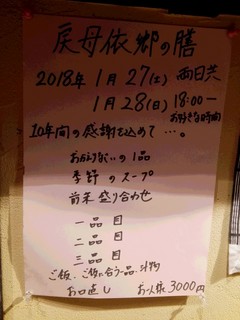 戻母依郷の膳
2018年1月27(土) 両日共
1月28(日) 18:00ー
お好きな時間
10年間の感謝を込めて…。
の1品
季野のスープ
前末盛り合わせ
一品目
二品目
三品目
ご飯、ご飯に合う一品、汁物
お口直し お一人様3000円